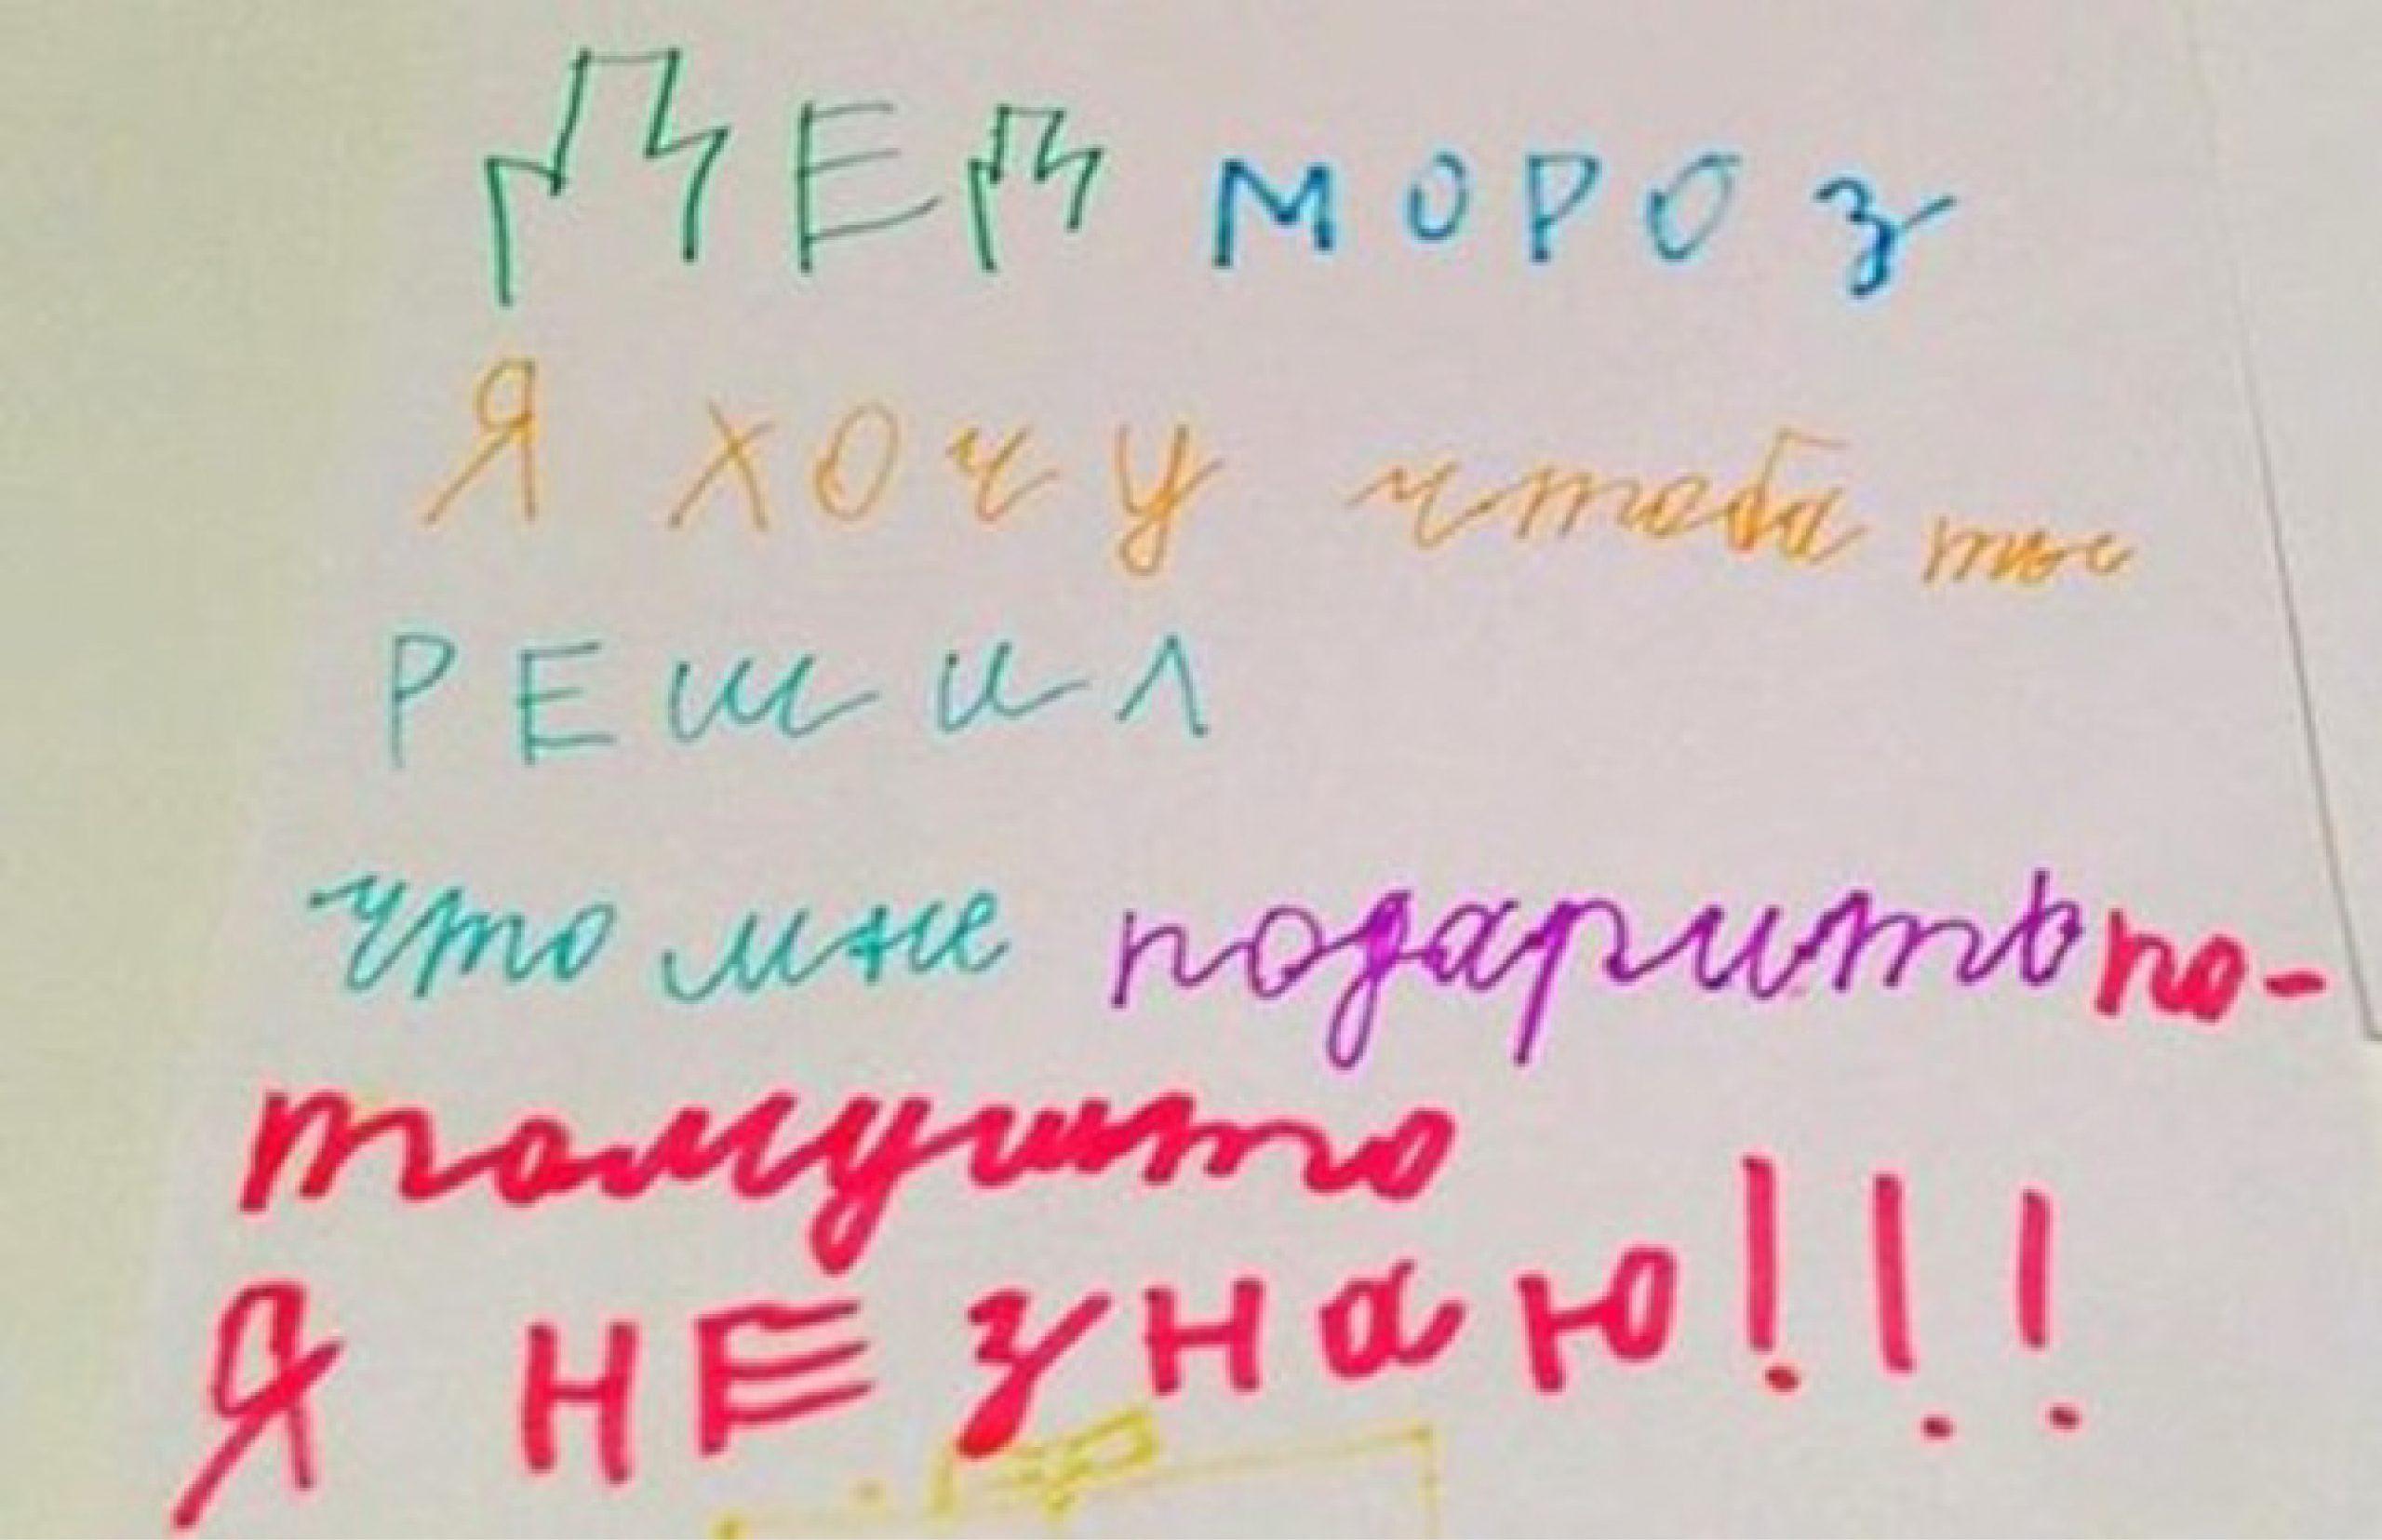 ДЕД МОРОЗ
Я ХОЧУ чтоба ты
РЕШИЛ
что мне подарить по-
томушто
Я НЕ ЗНаЮ!!!